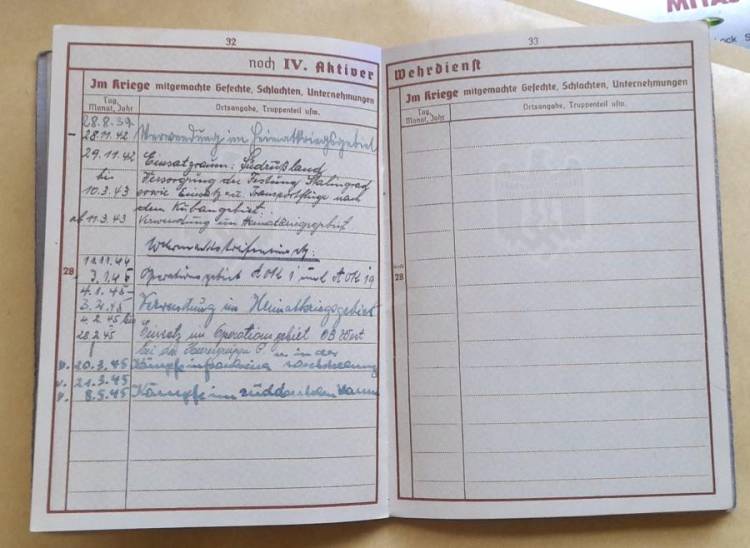 MITA
ock S
32
noch IV. Aktiver
Im Kriege mitgemachte Gefechte, Schlachten, Unternehmungen
Tag, Monat, Jahr
Ortsangabe, Truppenteil usw.
28.8.39 -
28.11.42 Verwendung im Heimatkriegsgebiet
29.11.42 Einsatzraum: Südrußland
bis Versorgung der Festung Stalingrad
10.3.43 sowie Einsatz zu Transportflüge nach
dem Kubangebiet.
ab 11.3.43 Verwendung im Heimatkriegsgebiet
Wehrmachtstreifeneinsatz:
28
3.1.45 Operationsgebiet A.O.K 1 und A.O.K 19
4.1.45
3.2.45 Verwendung im Heimatkriegsgebiet
4.2.45 bis Einsatz im Operationsgebiet OB West
28.2.45 bei der Heeresgruppe G u. in der
20.3.45 Kämpfe in
v. 21.3.45
8.5.45 Kämpfe im süddeutschen Raum
33
Wehrdienst
Im Kriege mitgemachte Gefechte, Schlachten, Unternehmungen
Tag, Monat, Jahr
Ortsangabe, Truppenteil usw.
28